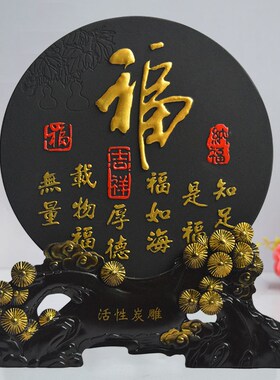 福
納福
吉祥
福
知足
是福
福如海
厚德
載物福
無量
活性炭雕